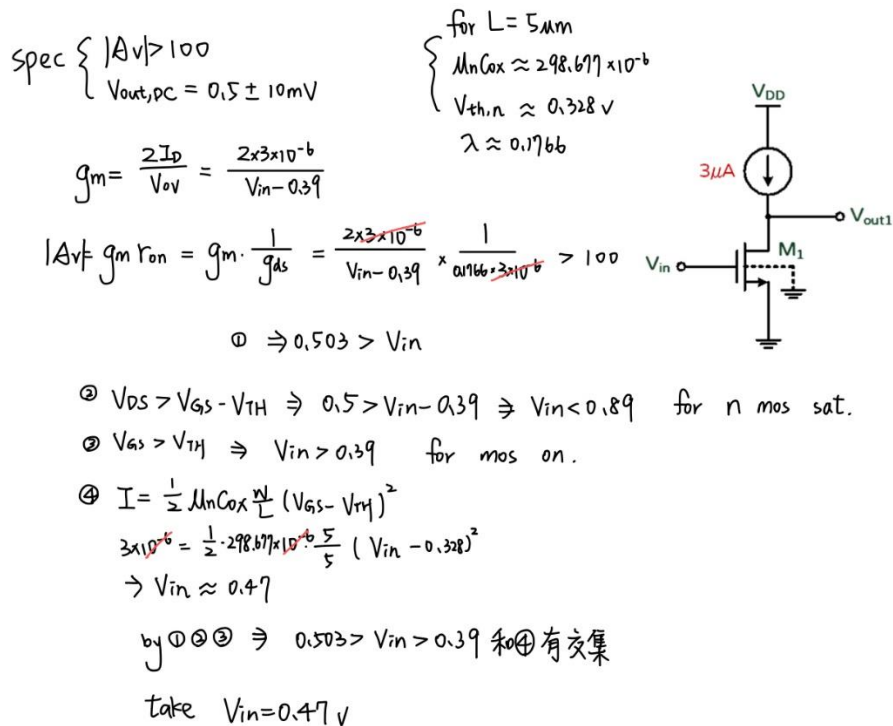 spec { |Av|>100
Vout,DC = 0.5 ± 10mV
for L = 5um
MnCox ≈ 298.677×10^-6
Vth,n ≈ 0.328 v
λ ≈ 0.1766
gm = 2ID / Vov = 2×3×10^-6 / Vin-0.39
|Av|= gm ron = gm · 1/gds = 2×3×10^-6 / Vin-0.39 × 1 / 0.1766×3×10^-6 > 100
① ⇒ 0.503 > Vin
② VDS > VGS - VTH ⇒ 0.5 > Vin - 0.39 ⇒ Vin < 0.89 for n mos sat.
③ VGS > VTH ⇒ Vin > 0.39 for mos on.
④ I = 1/2 MnCox W/L (VGS - VTH)^2
3×10^-6 = 1/2 · 298.677×10^-6 · 5/5 ( Vin - 0.328)^2
→ Vin ≈ 0.47
by ① ② ③ ⇒ 0.503 > Vin > 0.39 和④有交集
take Vin = 0.47 v
VDD
3μA
Vout1
M1
Vin